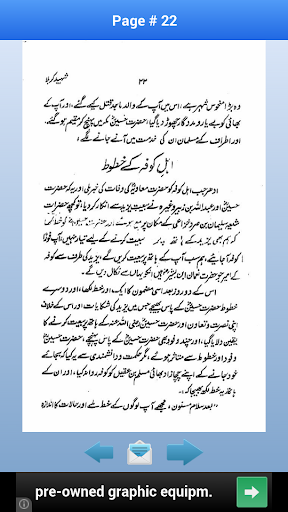 Page # 22
شہید کربلا
۲۲
وہ بڑا منحوس شہر ہے، اس میں آپ کے والد ماجد قتل کیے گئے، اور آپ کے
بھائی کو بے یار و مددگار چھوڑ دیا گیا، حضرت حسینؓ مکہ میں پہنچ کر مقیم ہو گئے،
اور اطراف کے مسلمان ان کی خدمت میں آنے جانے لگے،
اہل کوفہ کے خطوط
ادھر جب اہل کوفہ کو حضرت معاویہؓ کی وفات کی خبر ملی اور یہ کہ حضرت
حسینؓ اور عبداللہ بن زبیرؓ وغیرہ نے بیعت یزید سے انکار کر دیا، تو کچھ حضرات
سلیمان بن صرد خزاعی کے مکان پر اور حضرت حسینؓ کو خط لکھا
کہ ہم بھی یزید کے ہاتھ پر بیعت کرنے کے لیے تیار نہیں، آپ فوراً
کوفہ آ جائیے، ہم سب آپ کے ہاتھ پر بیعت کریں گے، یزید کی طرف سے کوفہ
کے امیر جو حضرت نعمان ابن بشیرؓ ہیں ان کو یہاں سے نکال دیں گے۔
اس کے دو روز بعد اسی مضمون کا ایک اور خط لکھا، اور دوسرے
خطوط حضرت حسینؓ کے پاس بھیجے جس میں یزید کی شکایات اور اس کے خلاف
اپنی نصرت و تعاون اور حضرت حسین رضی اللہ عنہ کے ہاتھ پر بیعت کرنے کا
یقین دلایا گیا، اور چند وفود بھی حضرت حسینؓ کے پاس پہنچے، حضرت حسینؓ
وفود اور خطوط سے متاثر ہوئے، مگر حکمت و دانشمندی سے یہ کیا کہ بجائے
خود جانے کے اپنے چچا زاد بھائی مسلم بن عقیل کو کوفہ روانہ کیا، اور ان کے
ہاتھ یہ خط لکھ بھیجا کہ:۔
”بعد سلام مسنون، مجھے آپ لوگوں کے خط ملے اور حالات کا اندازہ
pre-owned graphic equipm.